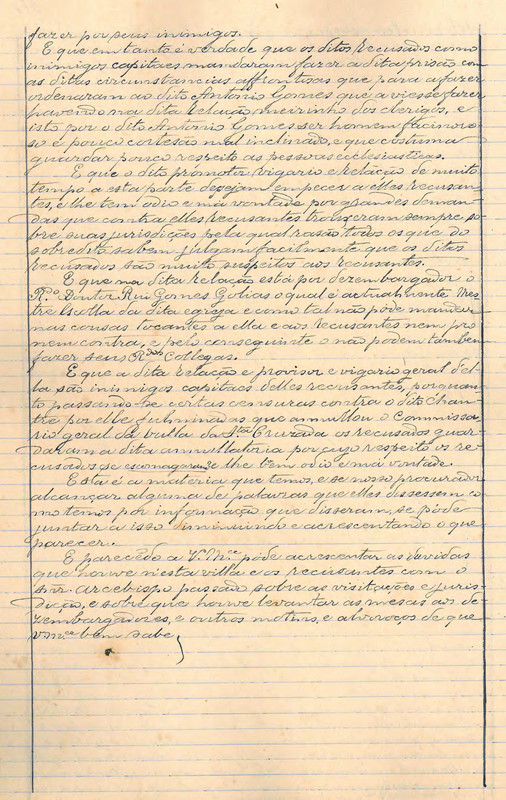 fazer por seus inimigos.
E que em tanto é verdade que os ditos recusados como
inimigos capitaes mandaram fazer a dita prisão con
as ditas circumstancias affrontosas que para a fazer
ordenaram ao dito Antonio Gomes que a viesse fazer
havendo na dita relação meirinho dos clerigos, e
isto por o dito Antonio Gomes ser homem facinoro-
so é pouco cortesão mal inclinado, e que costuma
guardar pouco respeito as pessoas ecclesiasticas.
E que o dito promotor, vigario e relação de muito
tempo a esta parte desejam empecer a elles recusan-
tes, e lhe tem odio e má vontade por grandes deman-
das que contra elles recusantes trouxeram sempre so-
bre suas jurisdicções pela qual rasão todos os que do
sobredito sabem julgam facilmente que os ditos
recusados são muito suspeitos aos recusantes.
E que na dita relação está por dezembargador o
R.do Doutor Rui Gomes Golias o qual é actualmente Mes-
tre Escolla da dita egreja e como tal não póde manda
nas cousas tocantes a ella e aos recusantes nem pro
nem contra, e pelo conseguinte o não podem tambem
fazer seus R.dos Collegas.
E que a dita relação e provisor e vigario geral del-
la são inimigos capitaes delles recusantes, porquan-
to passando-se certas censuras contra o dito Chan-
tre por elle fulminadas que annullou o Commissa-
rio geral da bulla da S.ta Cruzada os recusados guar-
daram a dita annullatoria por cujo respeito os re-
cusados se lhe tem odio e má vontade.
Esta é a materia que temos, e se nosso procurador
alcançar alguma de palavras que elles dissessem co-
mo temos por informação que disseram, se póde
juntar a isso diminuindo e acrescentando o que
parecer.
E parecêdo a V. M.ce póde acrescentar as duvidas
que houve n'esta villa e os recusantes com o
snr. arcebispo passado sobre as visitações e juris-
dicção, e sobre que houve levantar as mesas aos de-
zembargadores, e outros motins, e alvoroços de que
v. m.ce bem sabe,